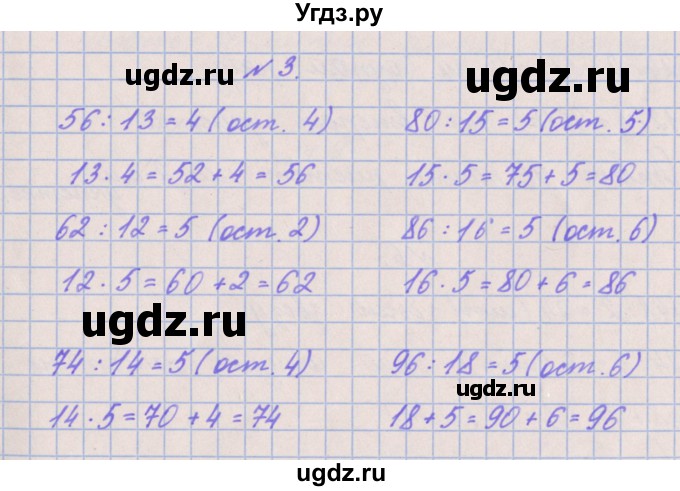 Угдз.ру
ugdz.ru № 3.
56 : 13 = 4 (ост. 4) 80 : 15 = 5 (ост. 5)
13 · 4 = 52 + 4 = 56 15 · 5 = 75 + 5 = 80
62 : 12 = 5 (ост. 2) 86 : 16 = 5 (ост. 6)
12 · 5 = 60 + 2 = 62 16 · 5 = 80 + 6 = 86
ugdz.ru
74 : 14 = 5 (ост. 4) 96 : 18 = 5 (ост. 6)
ugdz.ru
14 · 5 = 70 + 4 = 74 18 + 5 = 90 + 6 = 96
ugdz.ru